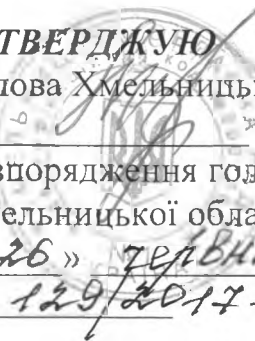 ТВЕРДЖУЮ
лова Хмельницьк
впорядження гол
ельницької обла
26 » черв
129/2017-